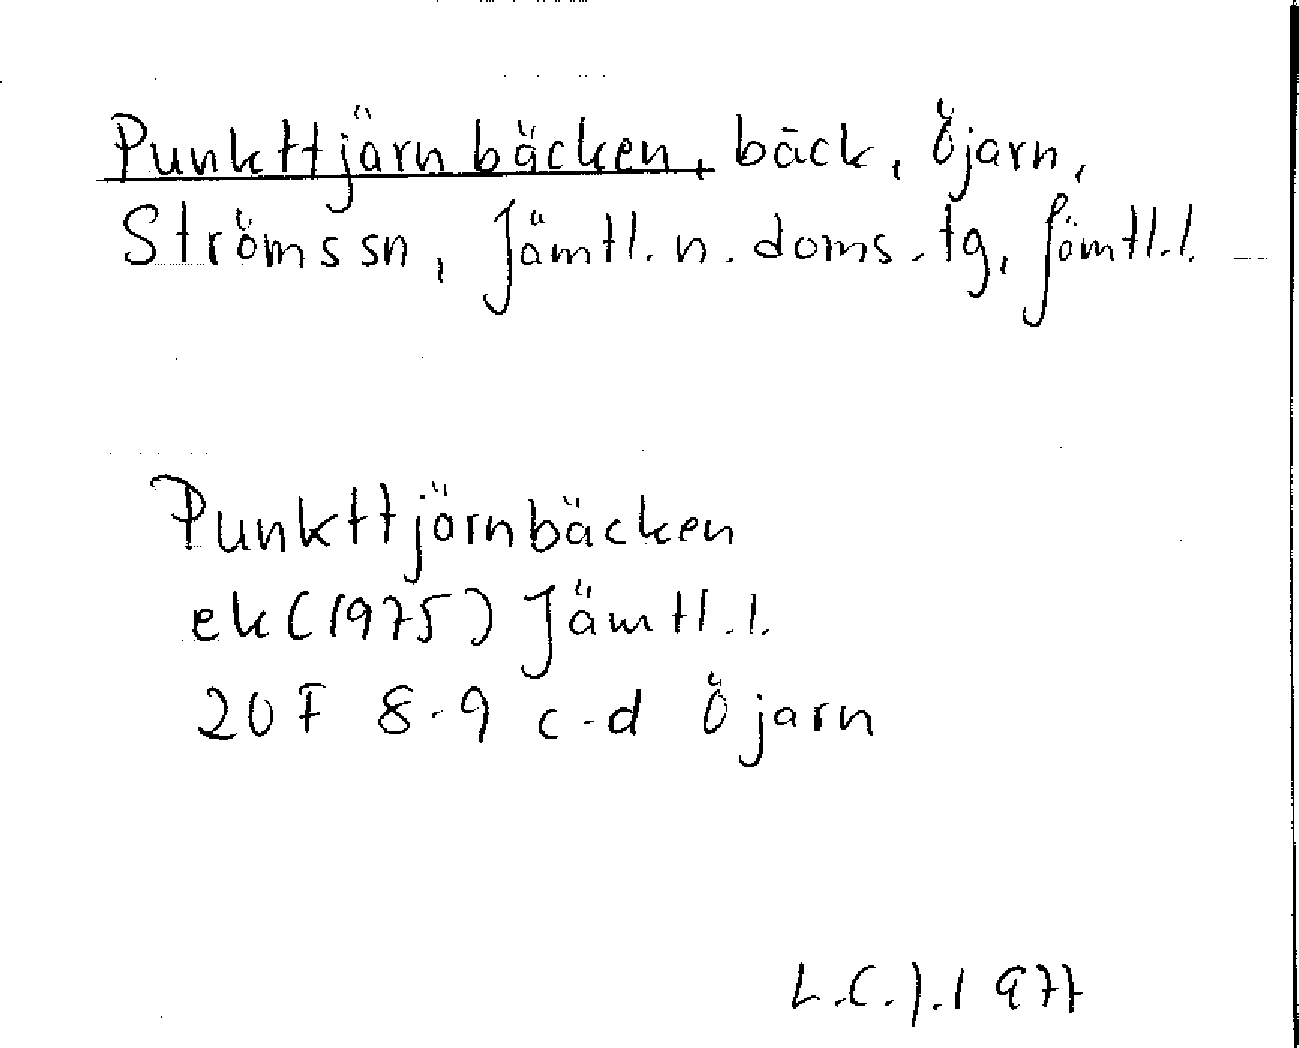 Punkttjärnbäcken, bäck, Öjarn,
Ströms sn, Jämtl. n. doms. tg, Jämtl. l.
Punkttjärnbäcken
ek (1975) Jämtl. l.
20 F 8-9 c-d Öjarn
L.C.J. 1977